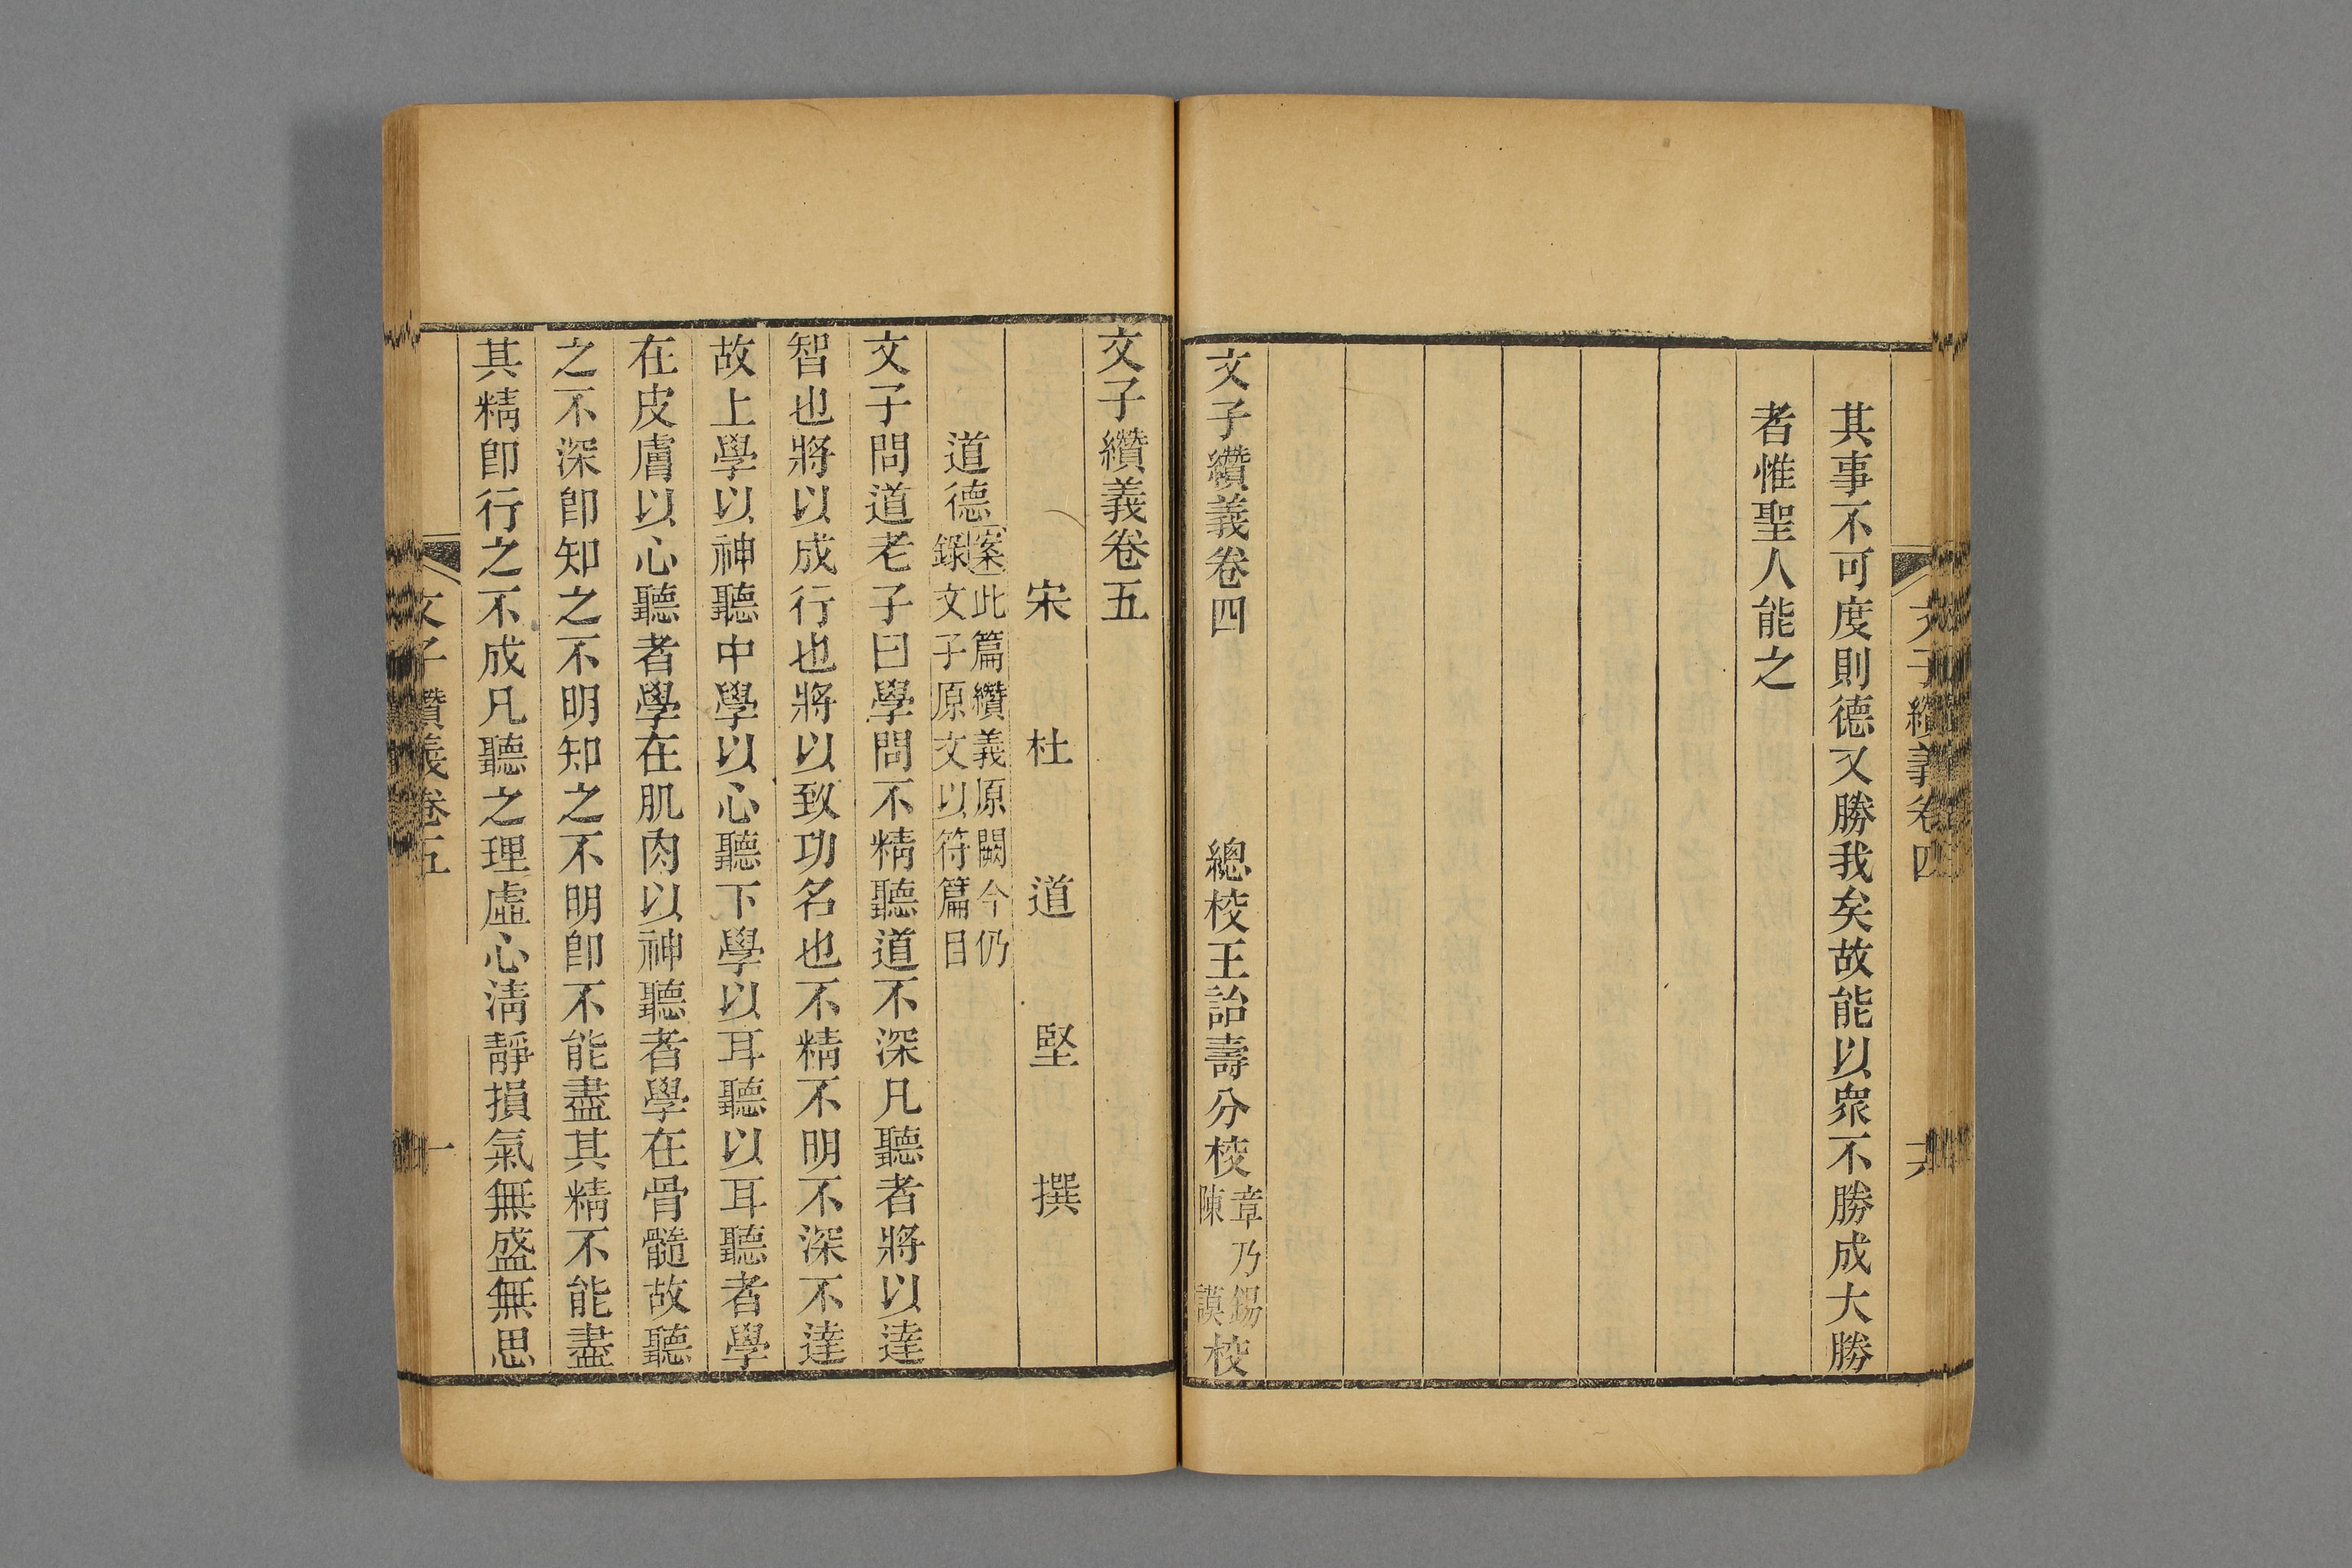 文子纘義卷四
其事不可度則德又勝我矣故能以衆不勝成大勝
者惟聖人能之
文子纘義卷四　總校王詒壽分校章乃錫陳謨校
文子纘義卷五
宋杜道堅撰
道德案此篇纘義原闕今仍錄文子原文以符篇目
文子問道老子曰學問不精聽道不深凡聽者將以達
智也將以成行也將以致功名也不精不明不深不達
故上學以神聽中學以心聽下學以耳聽以耳聽者學
在皮膚以心聽者學在肌肉以神聽者學在骨髓故聽
之不深卽知之不明知之不明卽不能盡其精不能盡
其精卽行之不成凡聽之理虛心淸靜損氣無盛無思
文子纘義卷五
一